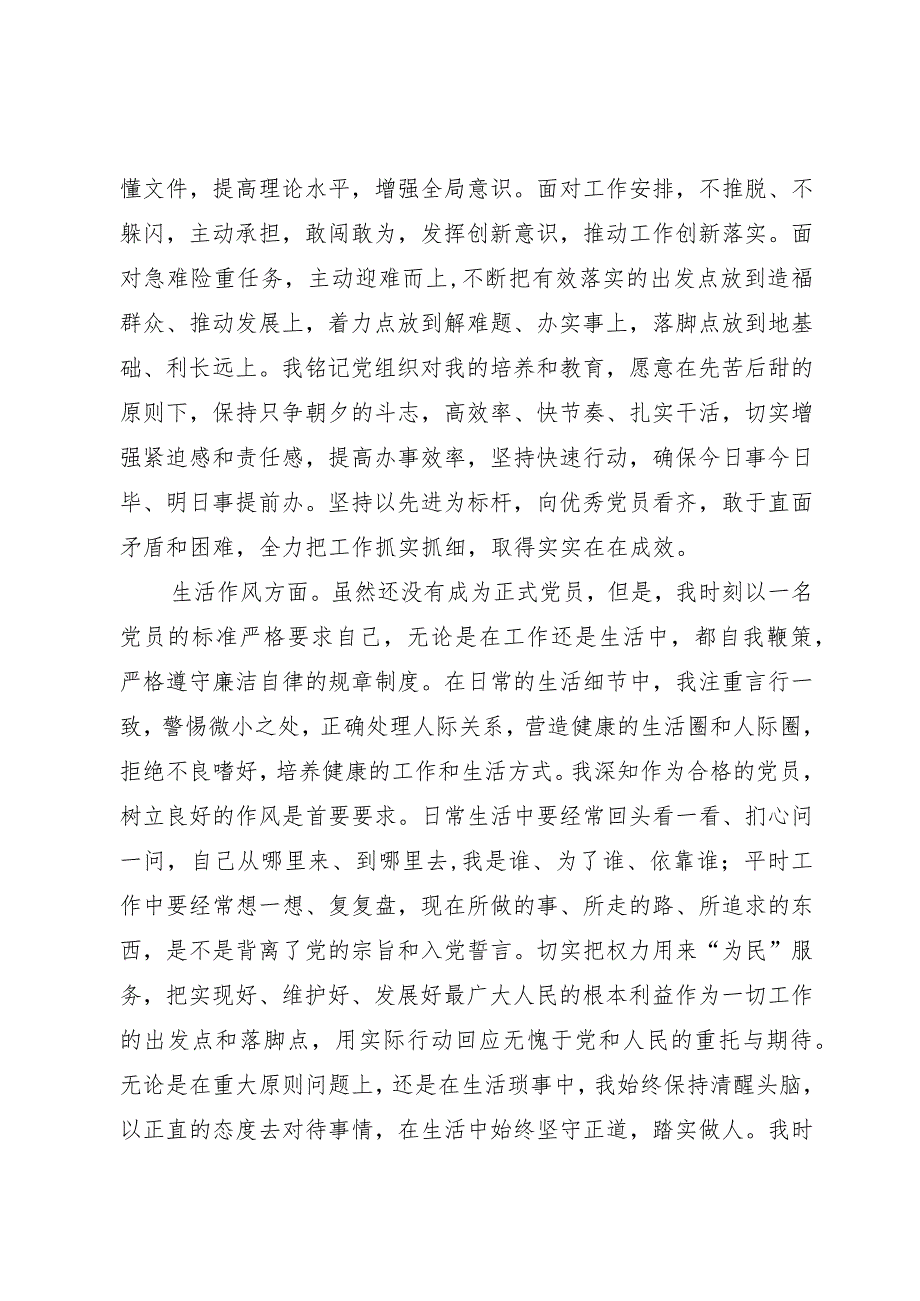 懂文件，提高理论水平，增强全局意识。面对工作安排，不推脱、不
躲闪，主动承担，敢闯敢为，发挥创新意识，推动工作创新落实。面
对急难险重任务，主动迎难而上,不断把有效落实的出发点放到造福
群众、推动发展上，着力点放到解难题、办实事上，落脚点放到地基
础、利长远上。我铭记党组织对我的培养和教育，愿意在先苦后甜的
原则下，保持只争朝夕的斗志，高效率、快节奏、扎实干活，切实增
强紧迫感和责任感，提高办事效率，坚持快速行动，确保今日事今日
毕、明日事提前办。坚持以先进为标杆，向优秀党员看齐，敢于直面
矛盾和困难，全力把工作抓实抓细，取得实实在在成效。
生活作风方面。虽然还没有成为正式党员，但是，我时刻以一名
党员的标准严格要求自己，无论是在工作还是生活中，都自我鞭策，
严格遵守廉洁自律的规章制度。在日常的生活细节中，我注重言行一
致，警惕微小之处，正确处理人际关系，营造健康的生活圈和人际圈，
拒绝不良嗜好，培养健康的工作和生活方式。我深知作为合格的党员，
树立良好的作风是首要要求。日常生活中要经常回头看一看、扪心问
一问，自己从哪里来、到哪里去,我是谁、为了谁、依靠谁；平时工
作中要经常想一想、复复盘，现在所做的事、所走的路、所追求的东
西，是不是背离了党的宗旨和入党誓言。切实把权力用来“为民”服
务，把实现好、维护好、发展好最广大人民的根本利益作为一切工作
的出发点和落脚点，用实际行动回应无愧于党和人民的重托与期待。
无论是在重大原则问题上，还是在生活琐事中，我始终保持清醒头脑，
以正直的态度去对待事情，在生活中始终坚守正道，踏实做人。我时